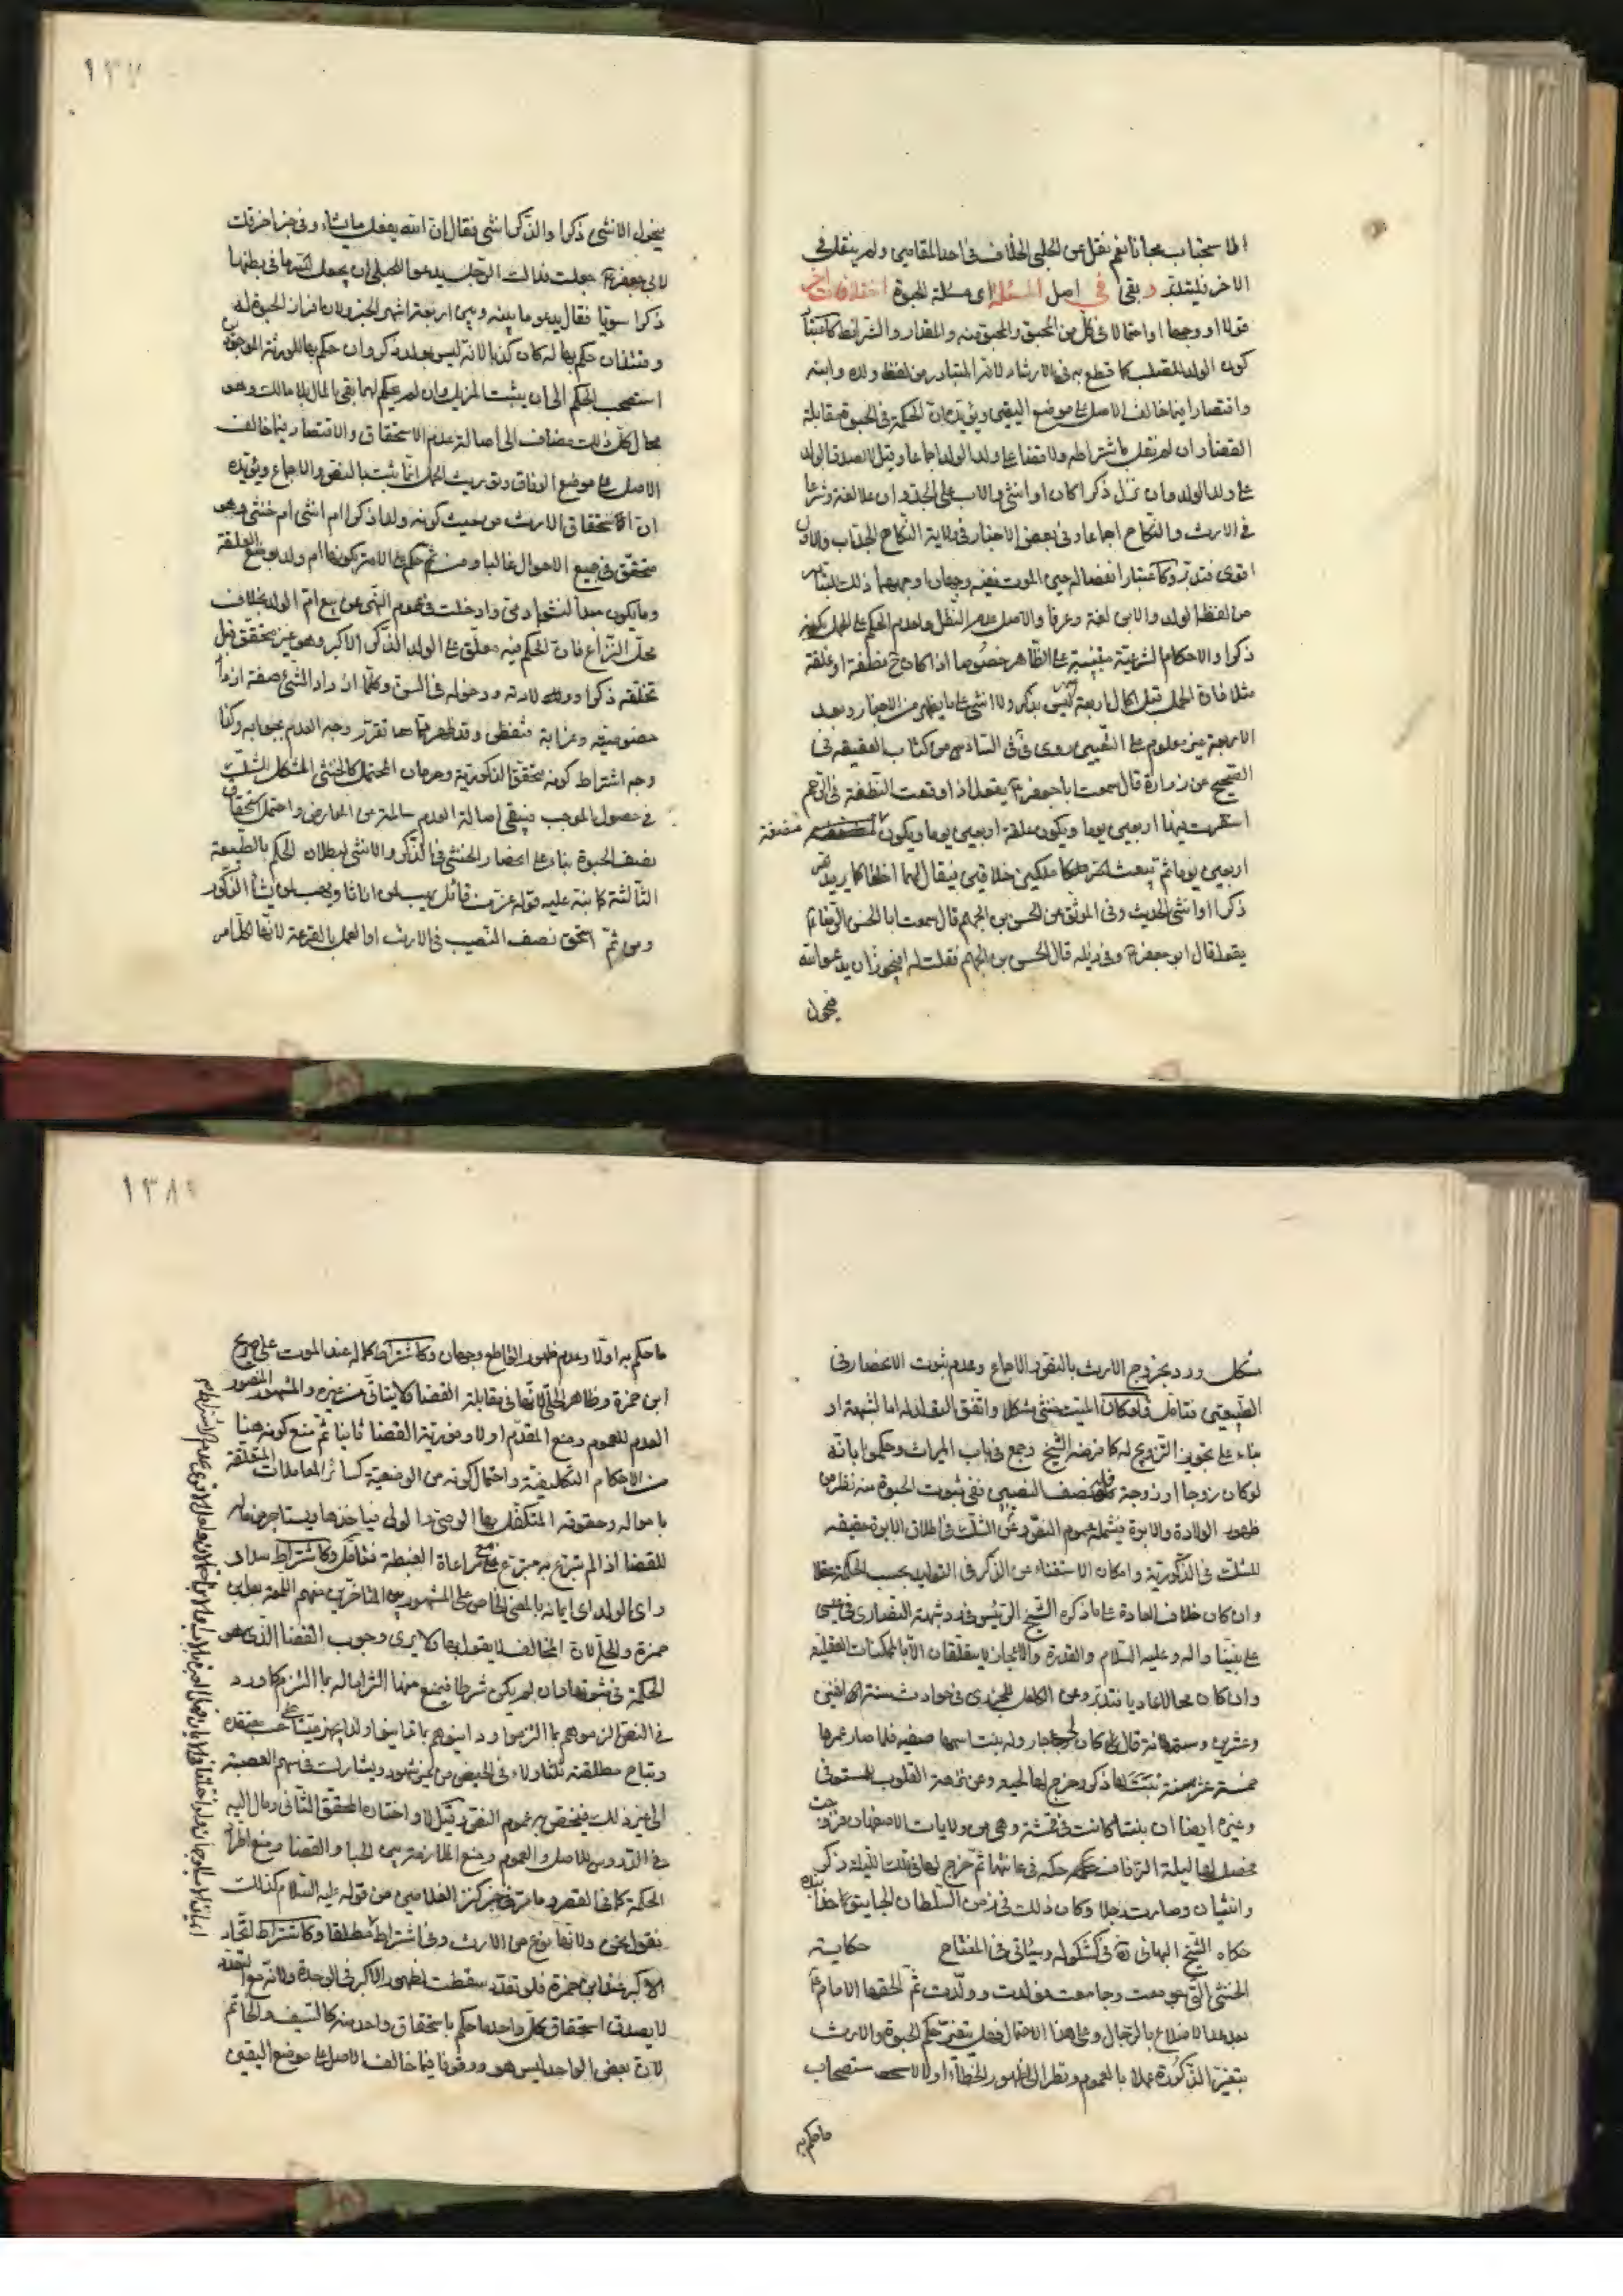 ١٣٧
الاستحباب مجانا نعم نقل عن الحلبي الخلاف في احد المقامين ولم ينقل في
الاخر فليتدبر وبقي في اصل المسئلة اى مسئلة الحبوة اختلافات اخر
قولا او وجها او احتمالا في كل من المحبو والمحبو منه والمقدار والشرائط كاعتبار
كون الولد للصلب كما قطع به في الارشاد لانه المتبادر من لفظ ولده وابنه
واقتصارا فيما خالف الاصل على موضع اليقين ويؤيده ان الحكمة في الحبوة مقابلة
القضاء وان لم نقل باشتراطه ولا قضاء على ولد الولد اجماعا وقيل لا لصدق الولد
على ولد الولد وان نزل ذكرا كان او انثى والاب على الجد وان علا لغة وشرعا
في الارث والنكاح اجماعا وفي بعض الاخبار في ولاية النكاح الجد اب والاول
اقوى فتدبر وكاعتبار انفصاله حين الموت ففيه وجهان اوجههما ذلك لتبادر
من لفظ الولد والابن لغة وعرفا والاصل عدم النقل ولعدم الحكم على الحمل بكونه
ذكرا والاحكام الشرعية مبتنية على الظاهر خصوصا اذا كان ح نطفة او علقة
مثلا فان الحمل قبل اكمال اربعة اشهر ليس بذكر ولا انثى على ما يظهر من الاخبار وبعد
الاربعة غير معلوم على التعيين روى في في السادس من كتاب العقيقة في
الصحيح عن زرارة قال سمعت ابا جعفر ع يقول اذا وقعت النطفة في الرحم
استقرت فيها اربعين يوما ويكون علقة اربعين يوما ويكون مضغة
اربعين يوما ثم يبعث الله ملكين خلاقين فيقال لهما اخلقا كما يريد الله
ذكرا او انثى الحديث وفي الموثق عن الحسن بن الجهم قال سمعت ابا الحسن الرضا ع
يقول قال ابو جعفر ع وفي ذيله قال الحسن بن الجهم فقلت له افيجوز ان يدعو الله
فيحول
يحول الانثى ذكرا والذكر انثى فقال ان الله يفعل ما يشاء وفي خبر اخر قلت
لابي جعفر ع جعلت فداك الرجل يدعو للحبلى ان يجعل الله ما في بطنها
ذكرا سويا فقال يدعو ما بينه وبين اربعة اشهر الخبر ولان افراز الحبوة له
وقتئذ ان حكم بها له كان كذبا لانه ليس بعد بذكر وان حكم بها للورثة الموجودين
استصحب الحكم الى ان يثبت المزيل وان لم يحكم لهما بقي المال بلا مالك وهو
محال كل ذلك مضاف الى اصالة عدم الاستحقاق والاقتصار فيما خالف
الاصل على موضع الوفاق وتوريث الحمل انما يثبت بالنص والاجماع ويؤيده
ان الاستحقاق الارث من حيث كونه ولدا ذكرا ام انثى ام خنثى وهو
متحقق في جميع الاحوال غالبا ومن ثم حكم على الامة بكونها ام ولد بوضع العلقة
وما يكون مبدأ لنشو ادمي وادخلت في عموم النهي عن بيع ام الولد بخلاف
محل النزاع فان الحكم فيه معلق على الولد الذكر الاكبر وهو غير متحقق قبل
تخلقه ذكرا وولادته ودخوله في السن وكلما ازداد الشئ صفة ازداد
خصوصية وغرابة فتفطن وقد ظهر مما تقرر وجه العدم بجوابه وكذا
وجه اشتراط كونه محقق الذكورية وحرمان المحتمل كالخنثى المشكل للشك
في حصول الموجب فيبقى اصالة العدم سالمة عن المعارض واحتمل استحقاق
نصف الحبوة بناء على انحصار الخنثى في الذكر والانثى لبطلان الحكم بالطبيعة
الثالثة كما نبه عليه قوله عز من قائل يهب لمن يشاء اناثا ويهب لمن يشاء الذكور
ومن ثم استحق نصف النصيب في الارث او العمل بالقرعة لانها لكل امر
١٣٨
مشكل ورد بخروج الارث بالنص والاجماع وعدم ثبوت الانحصار في
الطبيعتين فتامل ولو كان الميت خنثى مشكلا واتفق التولد له اما لشبهة او
بناء على تجويز التزويج له كما فرضه الشيخ وجمع في باب الميراث وحكموا بانه
لو كان زوجا او زوجة فله نصف النصيبين ففي ثبوت الحبوة منه نظر من
ظهور الولادة والابوة فيشمله عموم النص ومن الشك في اطلاق الابوة حقيقة
للشك في الذكورية وامكان الاستغناء عن الذكر في التوليد بحسب الحكمة عقلا
وان كان خلاف العادة على ما ذكره الشيخ الرئيس في رد شبهة النصارى في عيسى
على نبينا واله وعليه السلام والقدرة والاعجاز لا يتعلقان الا بالممكنات العقلية
وان كان محالا عاديا فتدبر وعن الكامل للجزري في حوادث سنة اثنين
وعشرين وستمائة قال كان لى جار وله بنت اسمها صفية فلما صار عمرها
خمسة عشر سنة نبت لها ذكر وخرج لها لحية وعن نزهة القلوب للمستوفي
وغيره ايضا ان بنتا كانت في قمشة وهي من ولايات الاصفهان فزوجت
فحصل لها ليلة الزفاف حكة في عانتها ثم خرج لها في تلك الليلة ذكر
وانثيان وصارت رجلا وكان ذلك في زمن السلطان الجايتو خدابنده
حكاه الشيخ البهائي ره في كشكوله وسياتي في المفتاح حكاية
الخنثى التي جومعت وجامعت فولدت وولدت ثم الحقها الامام ع
بعد عد الاضلاع بالرجال وعلى هذا الاحتمال فهل يتغير حكم الحبوة والارث
بتغير الذكورة عملا بالعموم ونظرا الى ظهور الخطاء اولا لاستصحاب
ما حكم به
ما حكم به اولا وعدم ظهور القاطع وجهان وكاشتراط كماله عند الموت على صريح
ابن حمزة وظاهر الحلي لانها في مقابلة القضا ولا يتاتى من غيره والمشهور المنصور
العدم للعموم ومنع المقدم اولا وفورية القضا ثانيا ثم منع كونه هنا
من الاحكام التكليفية واحتمال كونه من الوضعية كسائر المعاملات المتعلقة
باموله وحقوقه المتكفل بها الوصي او الولي فياخذها ويستاجر من ماله
للقضا اذا لم يتبرع به متبرع مع مراعاة الغبطة فتامل وكاشتراط سداد
راى الولد اى ايمانه بالمعنى الخاص على المشهور بين المتاخرين منهم اللمعة وابن
حمزة والحلي لان المخالف لا يقول بها ولا يرى وجوب القضا الذي هو
الحكمة في ثبوتها وان لم يكن شرطا فيمنع منها الزاما له بما التزم كما ورد
في النص الزموهم بما التزموا ودانوهم بما
وتباح مطلقته ثلثا ولاء في الحيض من غير شهود ويشارك في سهم العصبة
الى غير ذلك فيخص به عموم النص وقيل لا واختاره المحقق الثاني ومال اليه
في الدروس للاصل والعموم ومنع الملازمة بين الحبا والقضا ومنع اطراد
الحكمة كما في القصر وما مر في خبر كنز الغلامين من قوله عليه السلام كذلك
نقول نحن ولانها نوع من الارث وفي اشتراط مطلقا وكاشتراط اتحاد
الاكبر عند ابن حمزة فلو تعدد سقطت لظهور الاكبر في الوحدة ولانه مع التعدد
لا يصدق استحقاق كل واحد ما حكم باستحقاق واحد منه كالسيف والخاتم
لان بعض الواحد ليس هو ووقوفا فيما خالف الاصل على موضع اليقين